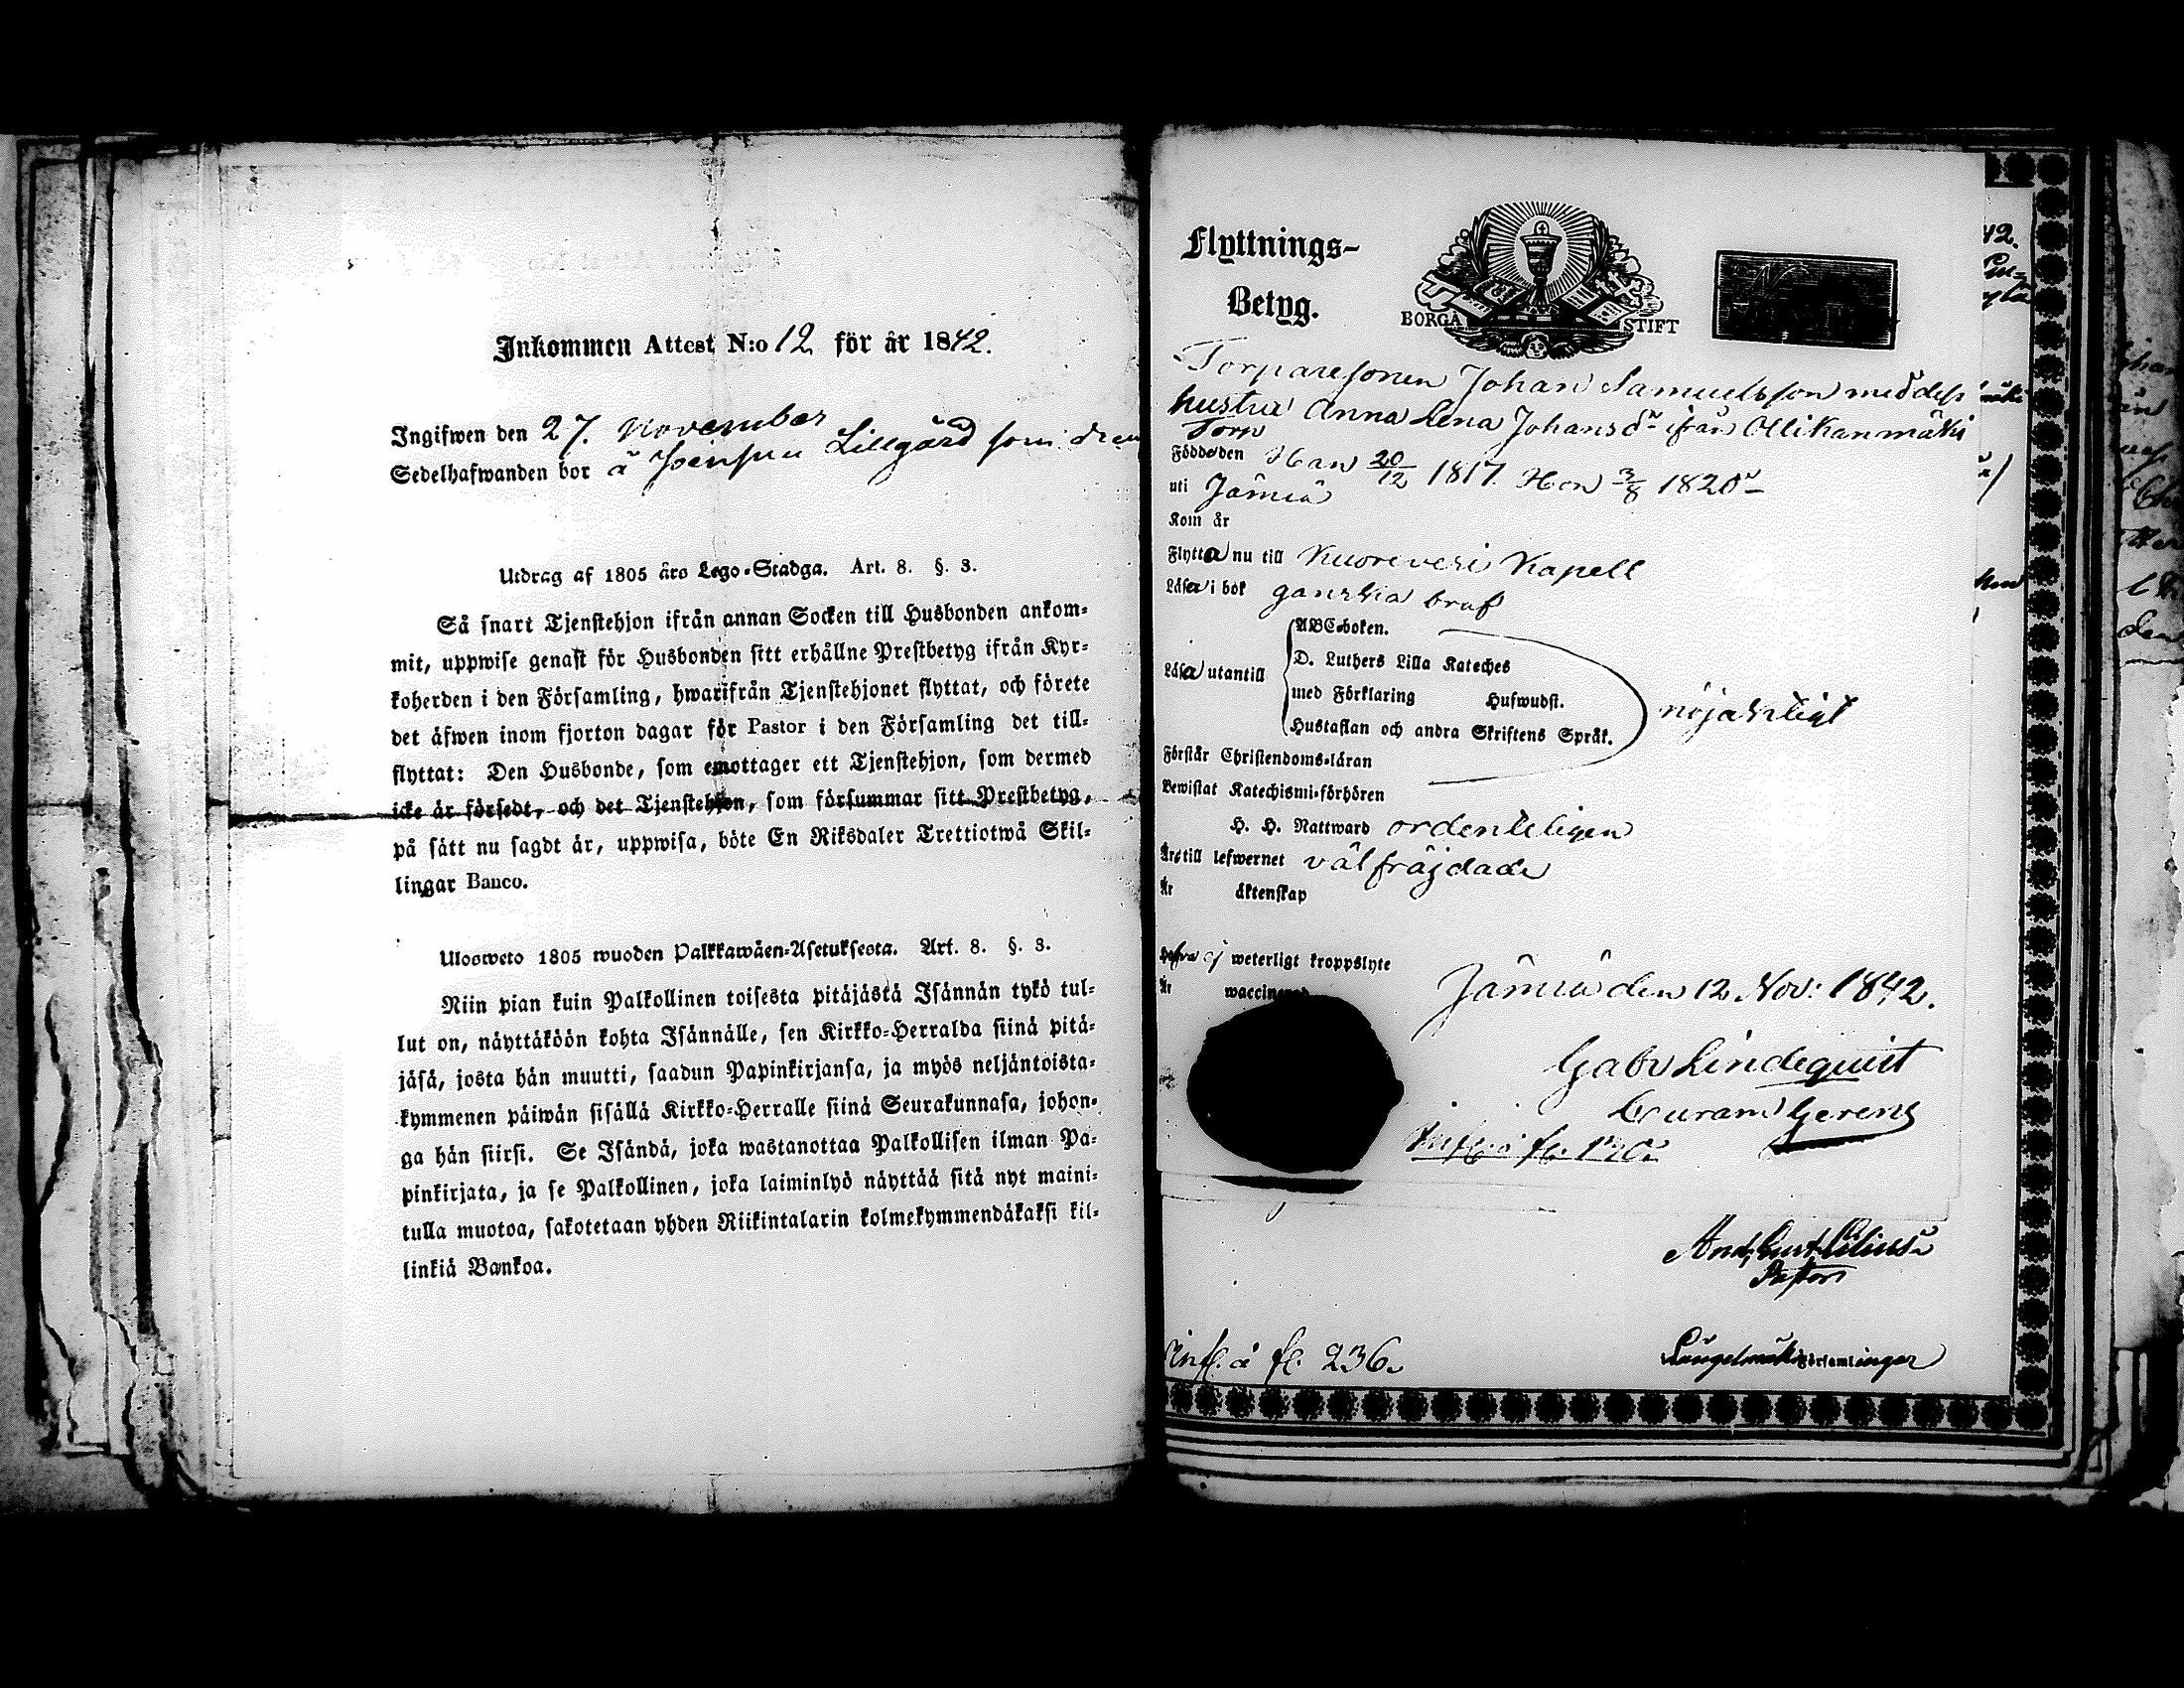 Inkommen Attest N:o 12 för år 1842.
Ingifwen den 27. November
Sedelhafwanden bor å Lillgård som
Utdrag af 1805 års Lego-Stadga. Art. 8. §. 3.
Så snart Tjenstehjon ifrån annan Socken till Husbonden ankom-
mit, uppwise genast för Husbonden sitt erhållne Prestbetyg ifrån Kyr-
koherden i den Församling, hwarifrån Tjenstehjonet flyttat, och förete
det äfwen inom fjorton dagar för Pastor i den Församling det till-
flyttat: Den Husbonde, som emottager ett Tjenstehjon, som dermed
icke är försedt, och det Tjenstehjon, som försummar sitt Prestbetyg,
på sätt nu sagdt är, uppwisa, böte En Riksdaler Trettiotwå Skil-
lingar Banco.
Ulosweto 1805 wuoden Palkkawäen-Asetuksesta. Art. 8. §. 3.
Niin pian kuin Palkollinen toisesta pitäjästä Isännän tykö tul-
lut on, näyttäköön kohta Isännälle, sen Kirkko-Herralda siinä pitä-
jäsä, josta hän muutti, saadun Papinkirjansa, ja myös neljäntoista-
kymmenen päiwän sisällä Kirkko-Herralle siinä Seurakunnasa, johon-
ga hän siirsi. Se Isändä, joka wastanottaa Palkollisen ilman Pa-
pinkirjata, ja se Palkollinen, joka laiminlyö näyttää sitä nyt maini-
tulla muotoa, sakotetaan yhden Riikintalarin kolmekymmendäkaksi kil-
linkiä Bankoa.
Flyttnings-
Betyg.
BORGÅ STIFT
Torparesonen Johan Samuelsson med dess
hustru Anna Lena Johansdr ifrån Ollikanmäki
Torp
Födde den Han 20/12 1817. Hon 3/8 1820
uti Jämsä
Kom år
Flytta nu till Kuorevesi Kapell
Läsa i bok ganska braf
Läsa utantill
ABC-boken.
D. Luthers Lilla Kateches
med Förklaring Hufwudst.
Hustaflan och andra Skriftens Språk.
nöjaktligt
Förstår Christendoms-läran
Bewistat Katechismi-förhören
H. H. Nattward ordenteligen
Äro till lefwernet välfräjdade
Är äktenskap
Hafva ej weterligt kroppslyte
Är waccinerad
Jämsä den 12 Nov: 1842.
Gabr Lindequist
Curam Gerens
Pastor
Infl. å fl. 236.
Längelmäki Församlingar